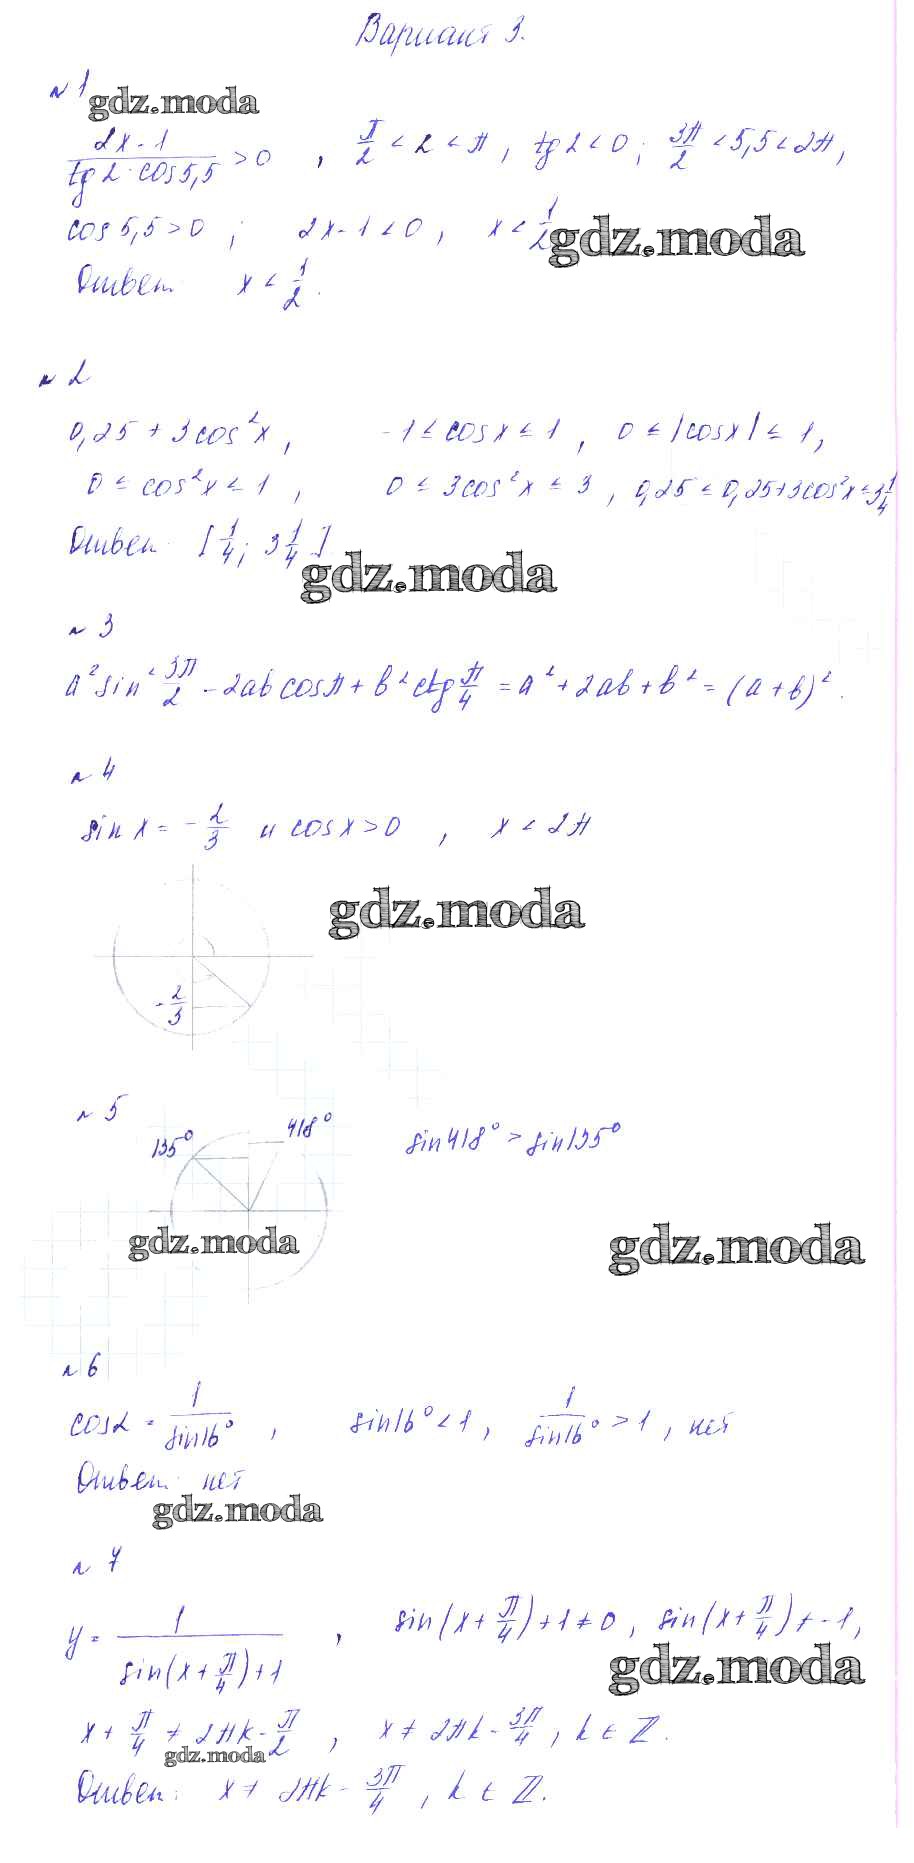 Вариант 3.
№ 1
gdz.moda
(2x - 1)/(tg 2 · cos 5,5) > 0 , π/2 < 2 < π , tg 2 < 0 ; 3π/2 < 5,5 < 2π ,
cos 5,5 > 0 ; 2x - 1 < 0 , x < 1/2
gdz.moda
Ответ: x < 1/2 .
№ 2
0,25 + 3cos²x , -1 ≤ cos x ≤ 1 , 0 ≤ |cos x| ≤ 1 ,
0 ≤ cos²x ≤ 1 , 0 ≤ 3cos²x ≤ 3 , 0,25 ≤ 0,25+3cos²x ≤ 3 1/4
Ответ: [1/4 ; 3 1/4]
gdz.moda
№ 3
a² sin² 3π/2 - 2ab cos π + b² ctg π/4 = a² + 2ab + b² = (a + b)² .
№ 4
sin x = - 2/3 и cos x > 0 , x < 2π
gdz.moda
- 2/3
№ 5
135° 418° sin 418° > sin 135°
gdz.moda gdz.moda
№ 6
cos α = 1/(sin 16°) , sin 16° < 1 , 1/(sin 16°) > 1 , нет
Ответ: нет
gdz.moda
№ 7
y = 1/(sin(x + π/4) + 1) , sin(x + π/4) + 1 ≠ 0 , sin(x + π/4) ≠ -1 ,
gdz.moda
x + π/4 ≠ 2πk - π/2 , x ≠ 2πk - 3π/4 , k ∈ Z .
gdz.moda
Ответ: x ≠ 2πk - 3π/4 , k ∈ Z .